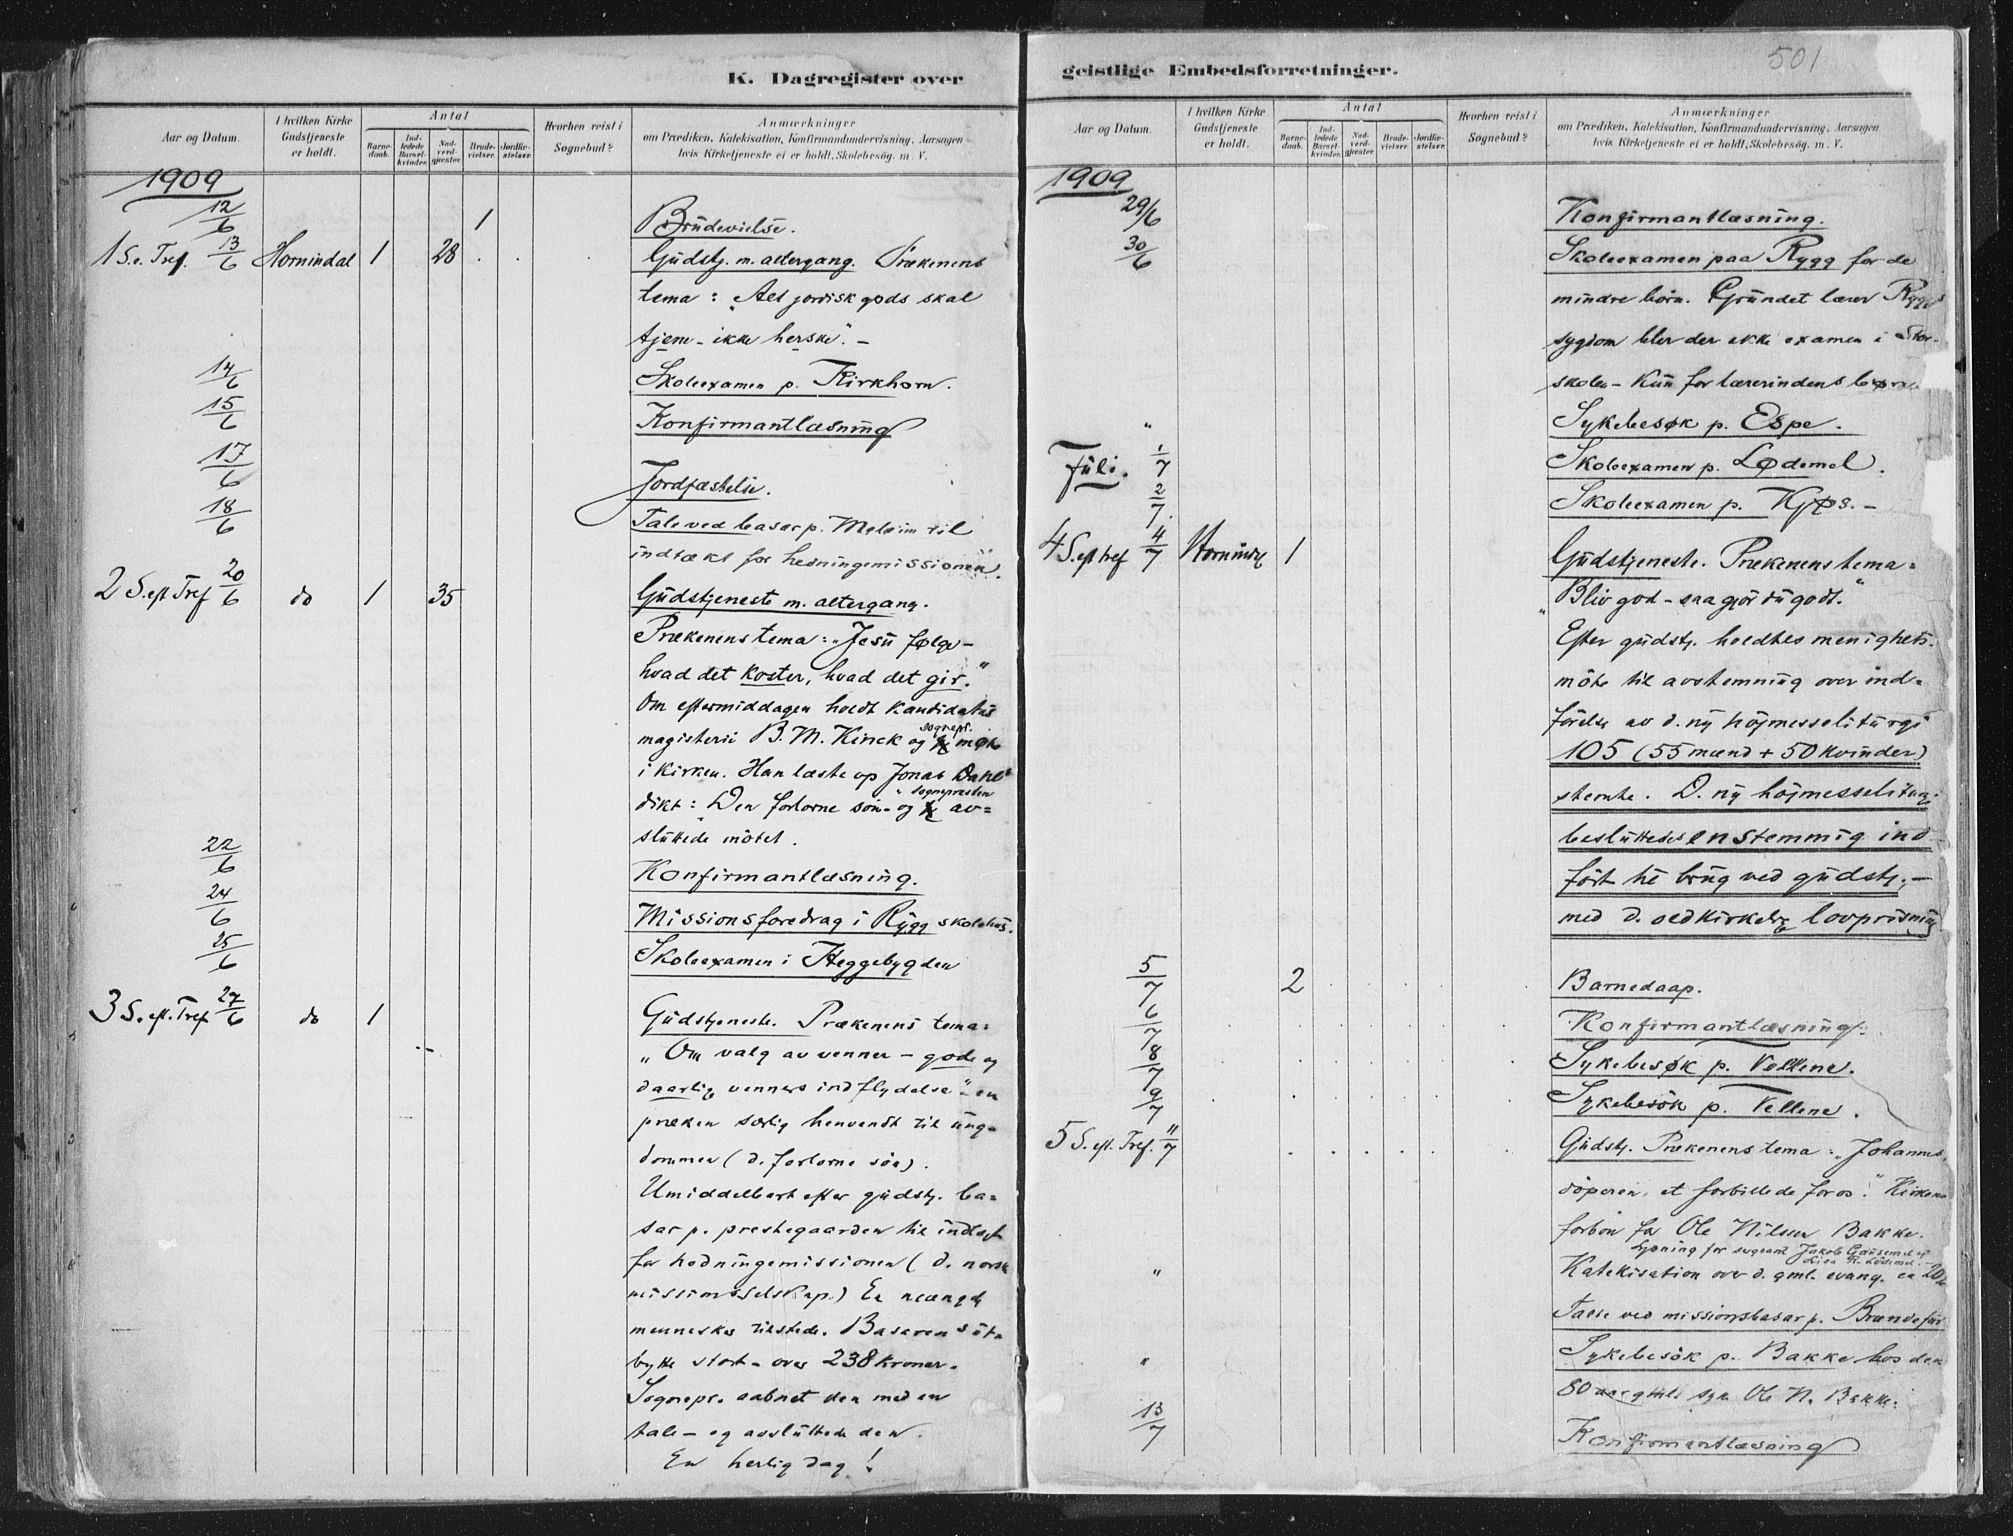 K. Dagregister over
Aar og Datum.
I hvilken Kirke Gudstjeneste er holdt.
Antal
Barnedaab.
Indledede Barselkvinder.
Nadverdgjester.
Brudevielser.
Jordfæstelser.
Hvorhen reist i Sognebud?
Anmærkninger
om Prædiken, Katekisation, Konfirmandundervisning, Aarsagen
hvis Kirketjeneste ei er holdt, Skolebesøg. m. V.
1909
12/6 1 Brudevielse.
1 S. e. Tref. 13/6 Hornindal 1 28 Gudstj. m. altergang. Prækenens
tema: "Alt jordisk gods skal
tjene - ikke herske". -
14/6 Skoleexamen p. Kirkhorn.
15/6 Konfirmantlæsning
17/6 Jordfæstelse.
18/6 Tale ved basar p. Melheim til
indtækt for hedningemissionen.
2 S. eft Tref 20/6 do 1 35 Gudstjeneste m. altergang.
Prækenens tema: "Jesu følge -
hvad det koster, hvad det gir."
Om eftermiddagen holdt kandidatus
magisterii B. M. Kinck og sognepr. møte
i kirken. Han læste op Jonas Dahls
dikt: "Den fortorne søn" - og sognepresten av=
sluttede møtet.
22/6 Konfirmantlæsning.
24/6 Missionsforedrag i Rygg skolehus.
25/6 Skoleexamen i Heggebygden
3 S. eft. Tref 27/6 do 1 Gudstjeneste. Prækenens tema:
"Om valg av venner - gode og
daarlig venners indflydelse" - en
præken særlig henvendt til ung=
dommen (d. fortorne søn).
Umiddelbart efter gudstj. ba=
sar p. prestegaarden til indtægt
for hedningemissionen (d. norske
missionsselskap.) En mængde
mennesker tilstede. Basarens ut=
bytte stort - over 238 kroner.
Sognepr. aabnet den med en
tale - og avsluttede den.
En herlig dag!
geistlige Embedsforretninger.
501
Aar og Datum.
I hvilken Kirke Gudstjeneste er holdt.
Antal
Barnedaab.
Indledede Barselkvinder.
Nadverdgjester.
Brudevielser.
Jordfæstelser.
Hvorhen reist i Sognebud?
Anmærkninger
om Prædiken, Katekisation, Konfirmandundervisning, Aarsagen
hvis Kirketjeneste ei er holdt, Skolebesøg. m. V.
1909
29/6 Konfirmantlæsning.
30/6 Skoleexamen paa Rygg for de
mindre børn. Grundet lærer Ryggs
sygdom blev der ikke examen i Stor-
skolen - kun for lærerindens børn
" Sykebesøk p. Espe.
Juli. 1/7 Skoleexamen p. Lødemel.
2/7. Skoleexamen p. Kjøs. -
4 S. eft tref 4/7 Hornindal 1 Gudstjeneste. Prækenens tema:
"Bliv god - saa gjør du godt."
Efter gudstj. holdtes menighets-
møte til avstemning over ind=
førelse av d. ny høimesseliturgi
105 (55 mænd + 50 kvinder)
stemte. D. ny høimesseliturgi
besluttedes enstemmig ind
ført til brug ved gudstj. -
med d. oldkirkelig lovprisning
5/7 2 Barnedaap.
6/7 Konfirmantlæsning.
8/7 Sykebesøk p. Vellene.
9/7 Sykebesøk p. Vellene.
5 S. eft. Tref. 11/7 Gudstj. Prækenens tema: "Johannes
døperen, et forbillede for os." Kirkens
forbøn for Ole Nilsen Bakke.
Lysning for Jakob
" Katekisation over d. gml. evang. ca 20
Tale ved missionsbasar p.
" Sykebesøk p. Bakke hos den
80 aar gmle syke Ole N. Bakke.
13/7 Konfirmantlæsning